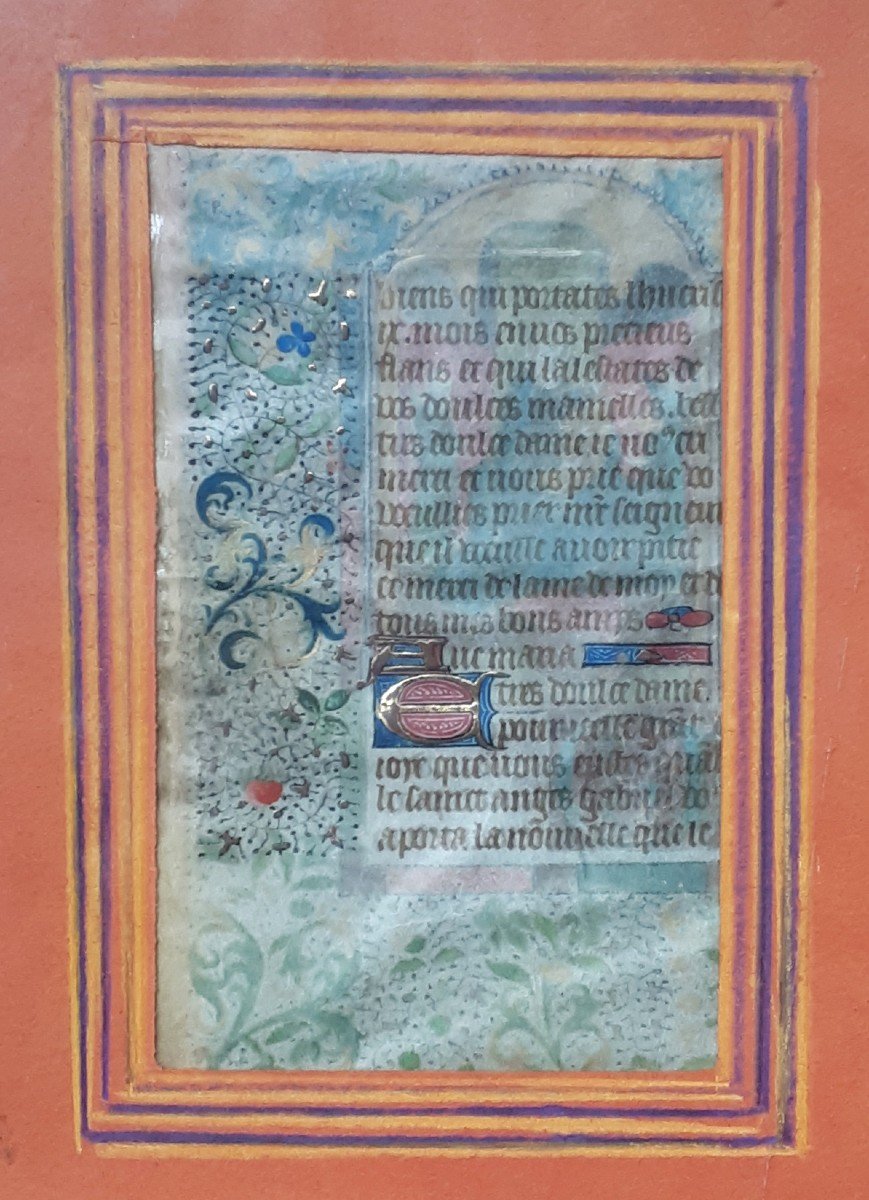 biens qui portates lhucrist
ix. mois en vos precieus
flans et qui lalestates de
vos doulces mamelles. bell
tres doulce dame ie vo⁹ cri
merci et vous prie que vo
veullies prier mr̄e seigneur
que il veuille avoir pitie
et merci de lame de moy et d
tous mes bons amis
Ave maria
E tres doulce dame.
pour icelle grāt
ioye que vous eustes quāt
le sainct anges gabriel vo⁹
aporta la nōuvelle que le